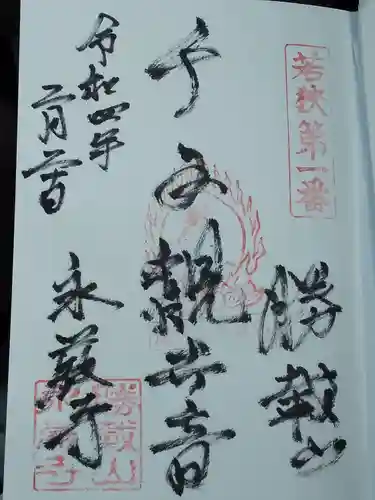 若狭第一番
勝載山
千手觀世音
令和四年
二月二十日
永厳寺
勝載山
永厳寺